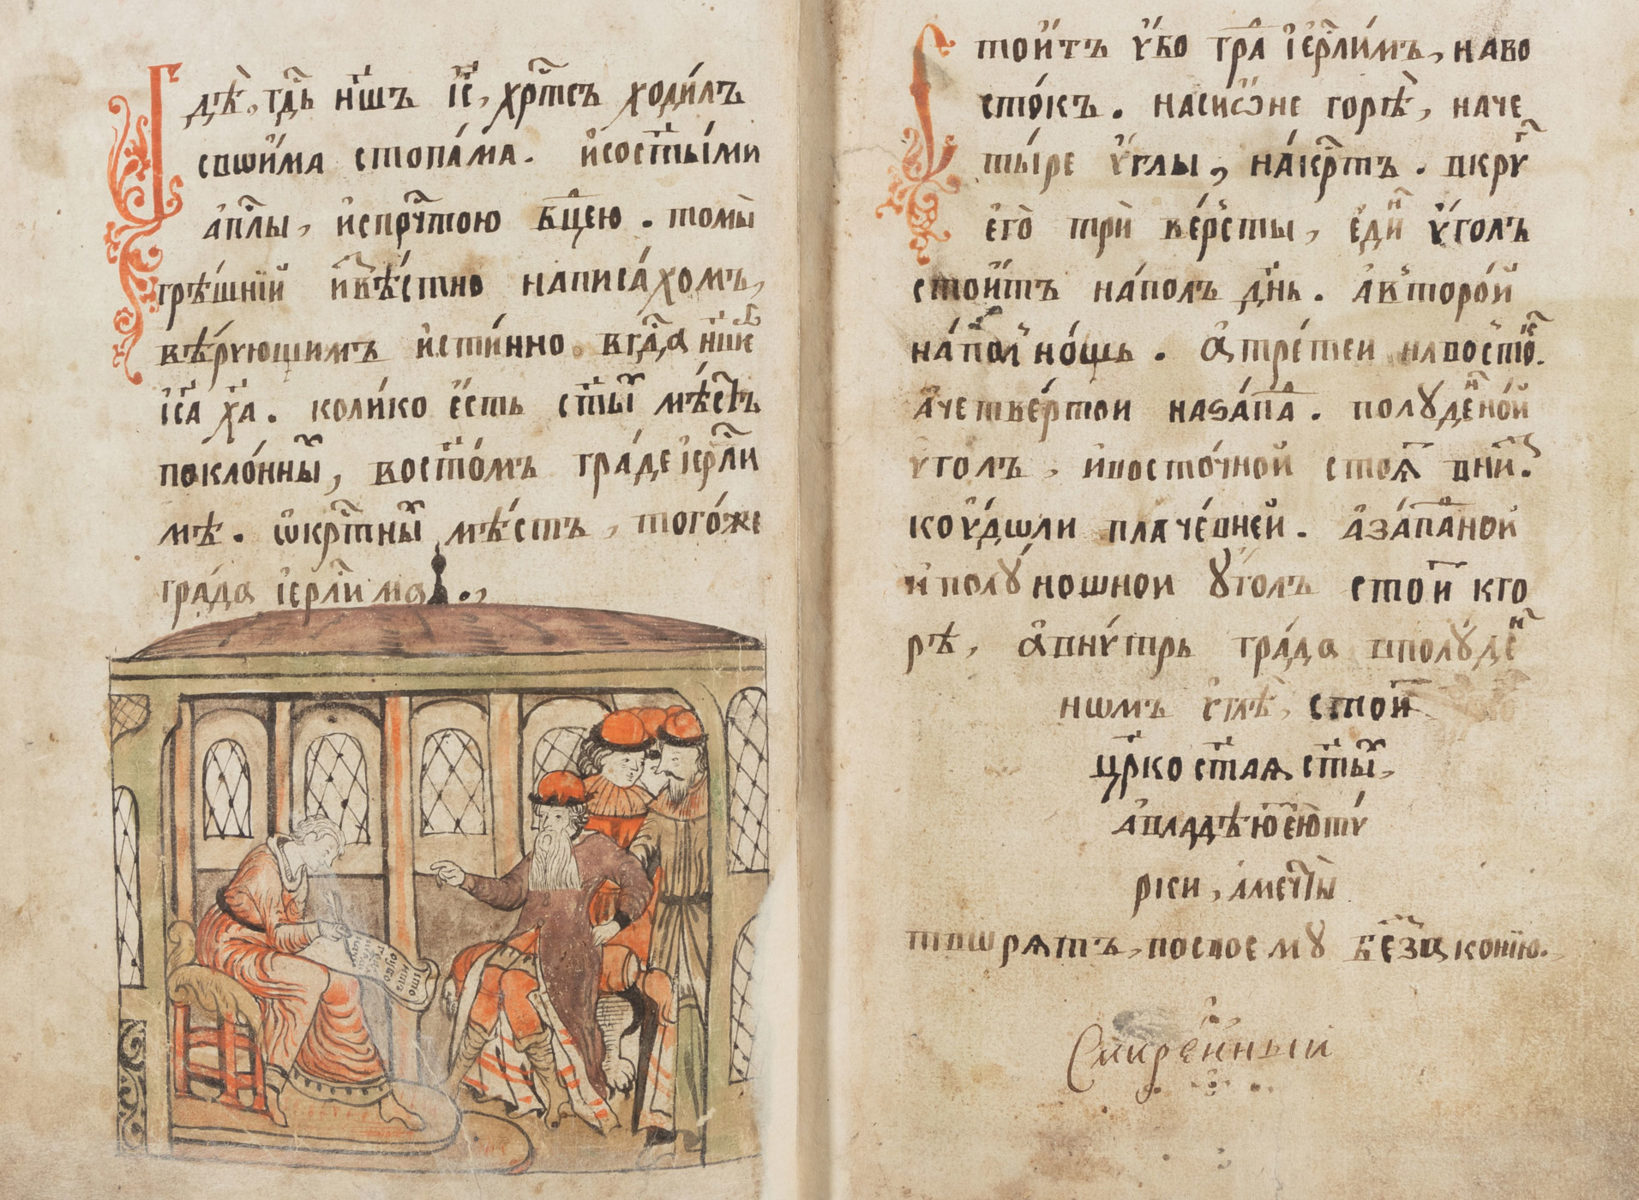 Идѣ, гдⷭ҇ь нш҃ъ іс҃, хрⷭ҇тосъ ходи́лъ
свои́ма стопа́ма. и҆ состы҃́ми
а҆пⷭ҇лы, и҆ спречⷭ҇тою бц҃ею. то мы̀
грѣ́шнїй и҆звѣ́стно написа́хомъ,
вѣ́рующимъ и҆сти́нно. в гдⷭ҇а нш҃его
іс҃а хр҃а. коли́ко є҆́сть ст҃ы́х мѣ́стъ
покло́нных, во ст҃о́мъ гра́де і҆ерⷭ҇ли
мѣ. ѡ҆крⷭ҇тных мѣ́стъ, того́же
гра́да і҆ерⷭ҇лима.,
Стои́тъ у҆́бо гра́ⷣ і҆ерⷭ҇ли́мъ, на во
сто́къ. на сиѡ́не горѣ̀, на че
ты́ре у҆́глы, на́ крⷭ҇тъ. вкруⷢ҇
є҆гѡ̀ трѝ ве́рсты, є҆ди́ⷩ у҆́голъ
стои́тъ на́ полъ дн҃ь. а҆ второ́й
на́ полⷩ но́щь. а҆ тре́теи на восто́ⷦ.
а҆ четве́ртои на за́паⷣ. полуде́ⷩно́й
у҆голъ, и҆ восто́чной стоѧ́ⷮ в ни́ⷥ.
ко у҆до́ли плаче́вней. а҆ за́паⷣной
и҆ полу́ношнои у҆́голъ стои́ⷮ к го
рѣ̀, а҆ внꙋ́трь гра́да в полу́деⷩ
номъ у҆глѣ̀, стои́ⷮ
цр҃ко ст҃аѧ ст҃ы́х,
а҆ владѣ́ютъ є҆ю̀ ту́
рки, а҆ мечⷮе́ⷮ
творѧтъ, по своему беззаконїю.
Смире́нный
что
убо